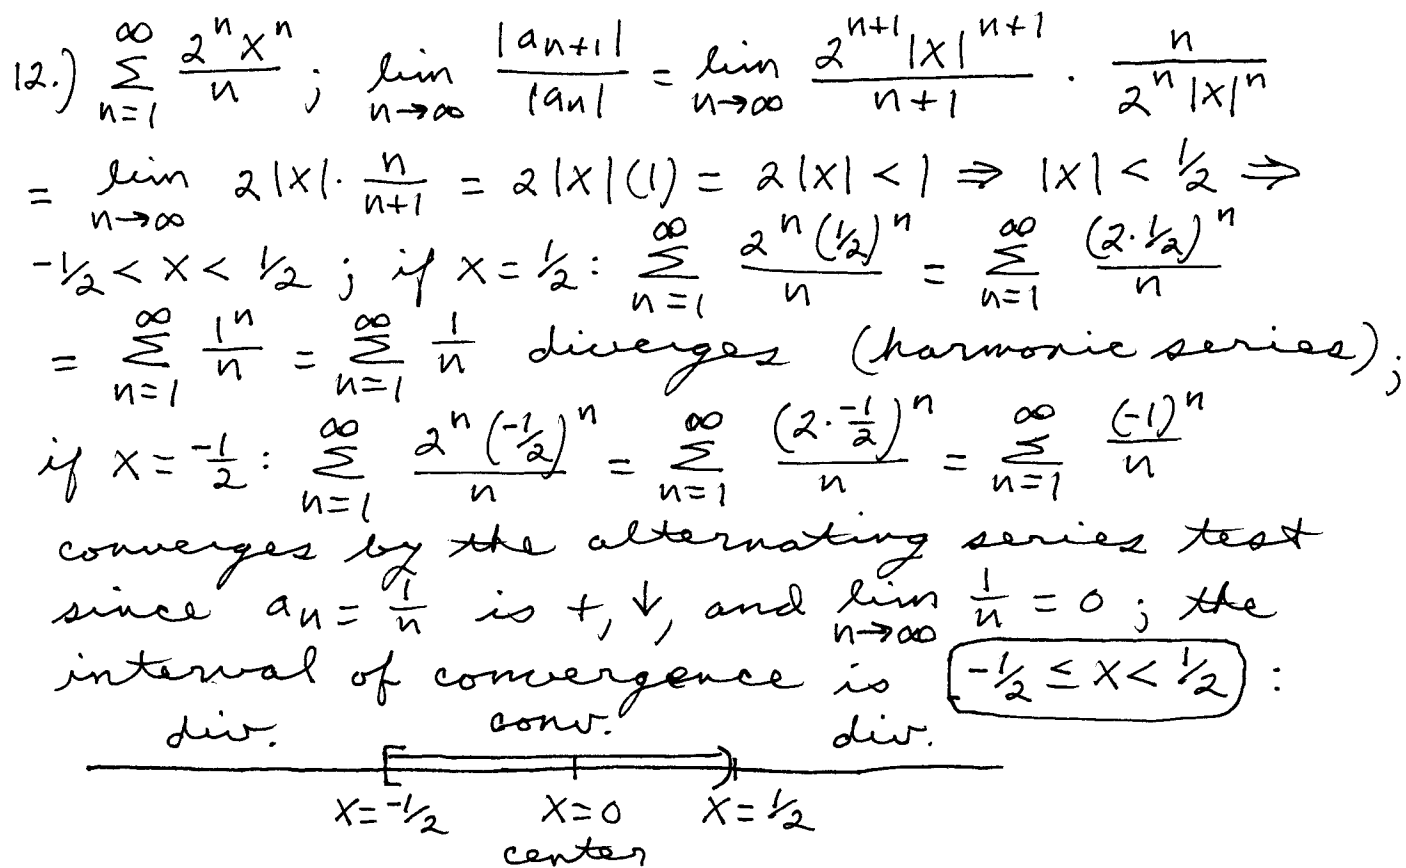 12.) ∞∑n=1 2ⁿxⁿ/n ; lim n→∞ |aₙ₊₁|/|aₙ| = lim n→∞ 2ⁿ⁺¹|x|ⁿ⁺¹/(n+1) · n/(2ⁿ|x|ⁿ)
= lim n→∞ 2|x|· n/(n+1) = 2|x|(1) = 2|x| < 1 ⇒ |x| < 1/2 ⇒
-1/2 < x < 1/2 ; if x = 1/2 : ∞∑n=1 2ⁿ(1/2)ⁿ/n = ∞∑n=1 (2·1/2)ⁿ/n
= ∞∑n=1 1ⁿ/n = ∞∑n=1 1/n diverges (harmonic series) ;
if x = -1/2 : ∞∑n=1 2ⁿ(-1/2)ⁿ/n = ∞∑n=1 (2·-1/2)ⁿ/n = ∞∑n=1 (-1)ⁿ/n
converges by the alternating series test
since aₙ = 1/n is +, ↓, and lim n→∞ 1/n = 0 ; the
interval of convergence is -1/2 ≤ x < 1/2 :
div. conv. div.
x = -1/2 x = 0 x = 1/2
center